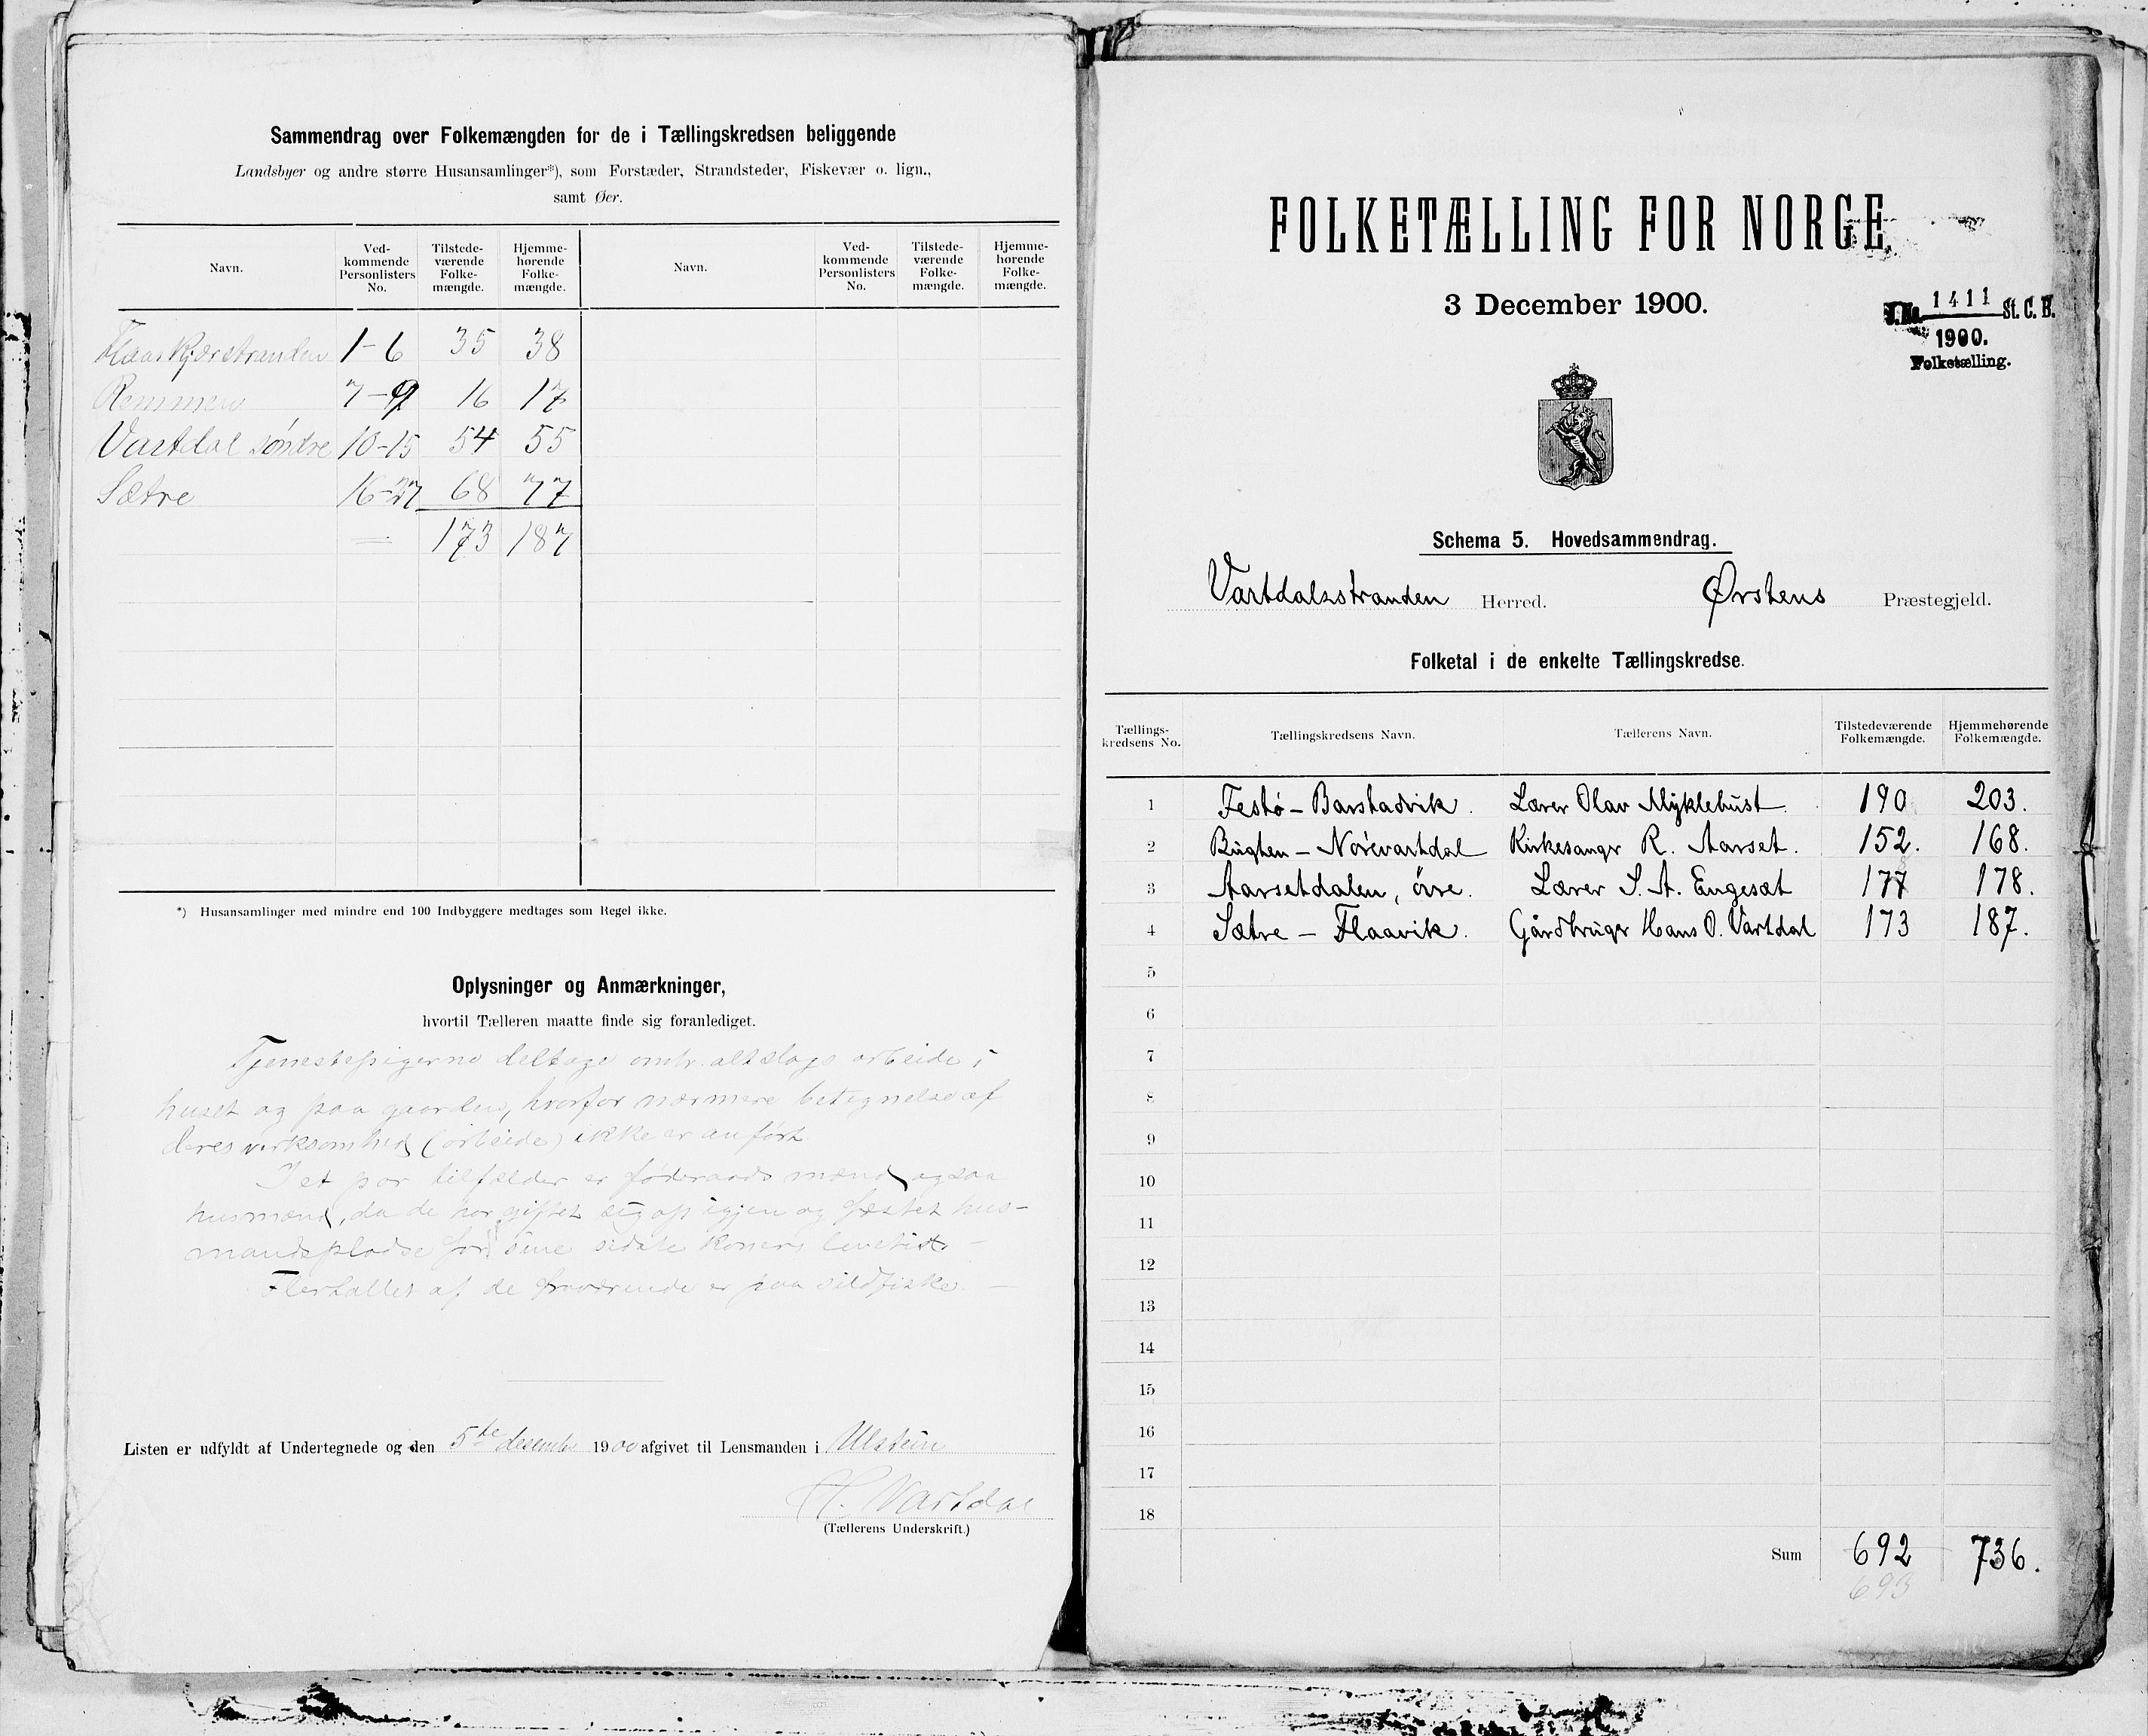 Sammendrag over Folkemængden for de i Tællingskredsen beliggende
Landsbyer og andre større Husansamlinger*), som Forstæder, Strandsteder, Fiskevær o. lign.,
samt Øer.
Navn. Ved-kommende Personlisters No. Tilstede-værende Folke-mængde. Hjemme-hørende Folke-mængde. Navn. Ved-kommende Personlisters No. Tilstede-værende Folke-mængde. Hjemme-hørende Folke-mængde.
Flaaskjærstranden 1-6 35 38
Remmen 7-9 16 17
Vartdal söndre 10-15 54 55
Sætre 16-27 68 77
173 187
*) Husansamlinger med mindre end 100 Indbyggere medtages som Regel ikke.
Oplysninger og Anmærkninger,
hvortil Tælleren maatte finde sig foranlediget.
Tjenestepigerne deltage omtr. altslags arbeide i
huset og paa gaarden, hvorfor nærmere betegnelse af
deres virksomhed (arbeide) ikke er anført
I et par tilfælder er føderaads mænd ogsaa
husmænd, da de har giftet sig op igjen og fæstet hus-
mandsplads for sine sidste koners levetid. -
Flertallet af de fraværende er paa sildfiske. -
Listen er udfyldt af Undertegnede og den 5te desember 1900 afgivet til Lensmanden i Ulstein
H. Vartdal
(Tællerens Underskrift.)
FOLKETÆLLING FOR NORGE
3 December 1900.
J. No. 1411 St. C. B.
1900.
Folketælling.
Schema 5. Hovedsammendrag.
Vartdalsstranden Herred. Ørstens Præstegjeld.
Folketal i de enkelte Tællingskredse.
Tællings-kredsens No. Tællingskredsens Navn. Tællerens Navn. Tilstedeværende Folkemængde. Hjemmehørende Folkemængde.
1 Festø - Barstadvik. Lærer Olav Myklebust 190 203.
2 Bugten - Nörevartdal Kirkesangr R. Aarset. 152. 168.
3 Aarsetdalen, övre. Lærer S. A. Engesæt 177 178.
4 Sætre - Flaavik. Gårdbruger Hans O. Vartdal 173 187.
5
6
7
8
9
10
11
12
13
14
15
16
17
18
Sum 692 736.
693